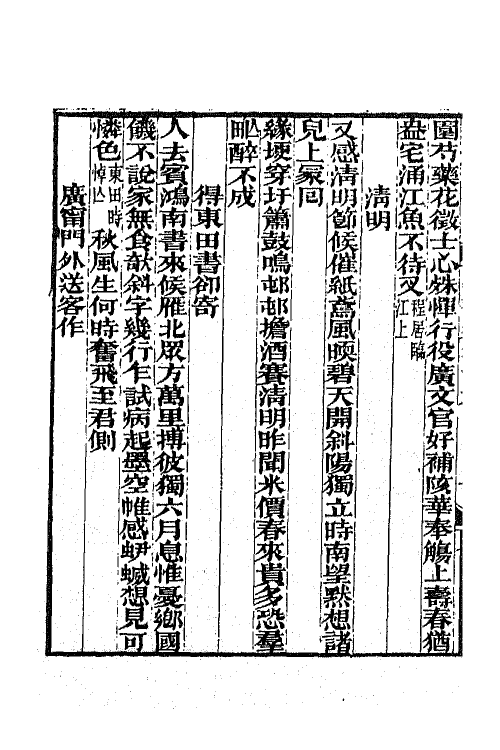 園芍藥花徵士心殊憚行役廣文官好補陔華奉觴上壽春猶
盎宅涌江魚不待叉程居臨江上
清明
又感清明節候催紙鳶風暖碧天開斜陽獨立時南望默想諸
兒上冢回
緣埂穿圩簫鼓鳴邨邨擔酒賽清明昨聞米價春來貴多恐羣
甿醉不成
得東田書卻寄
人去賓鴻南書來候雁北眾方萬里摶彼獨六月息惟憂鄉國
饑不說家無食欹斜字幾行乍試病起墨空帷感蛜蝛想見可
憐色東田時悼亡秋風生何時奮飛至君側
廣甯門外送客作